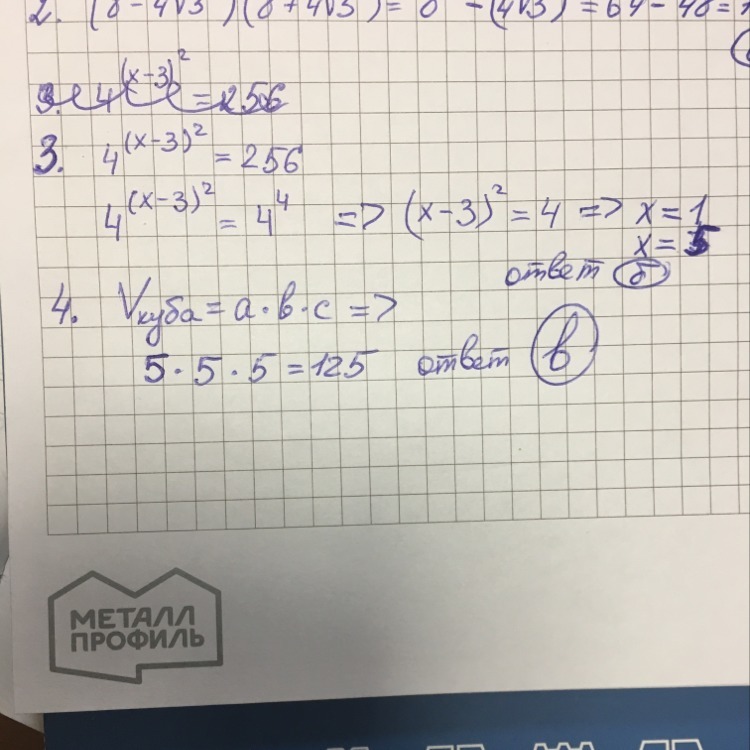 2. (8-4√3)(8+4√3)= 8² -(4√3)² =64-48=
3. 4^(x-3)² = 256
3. 4^(x-3)² = 256
4^(x-3)² = 4^4 => (x-3)² = 4 => x=1
x=5
ответ б
4. Vкуба = a·b·c =>
5·5·5=125 ответ в
МЕТАЛЛ
ПРОФИЛЬ